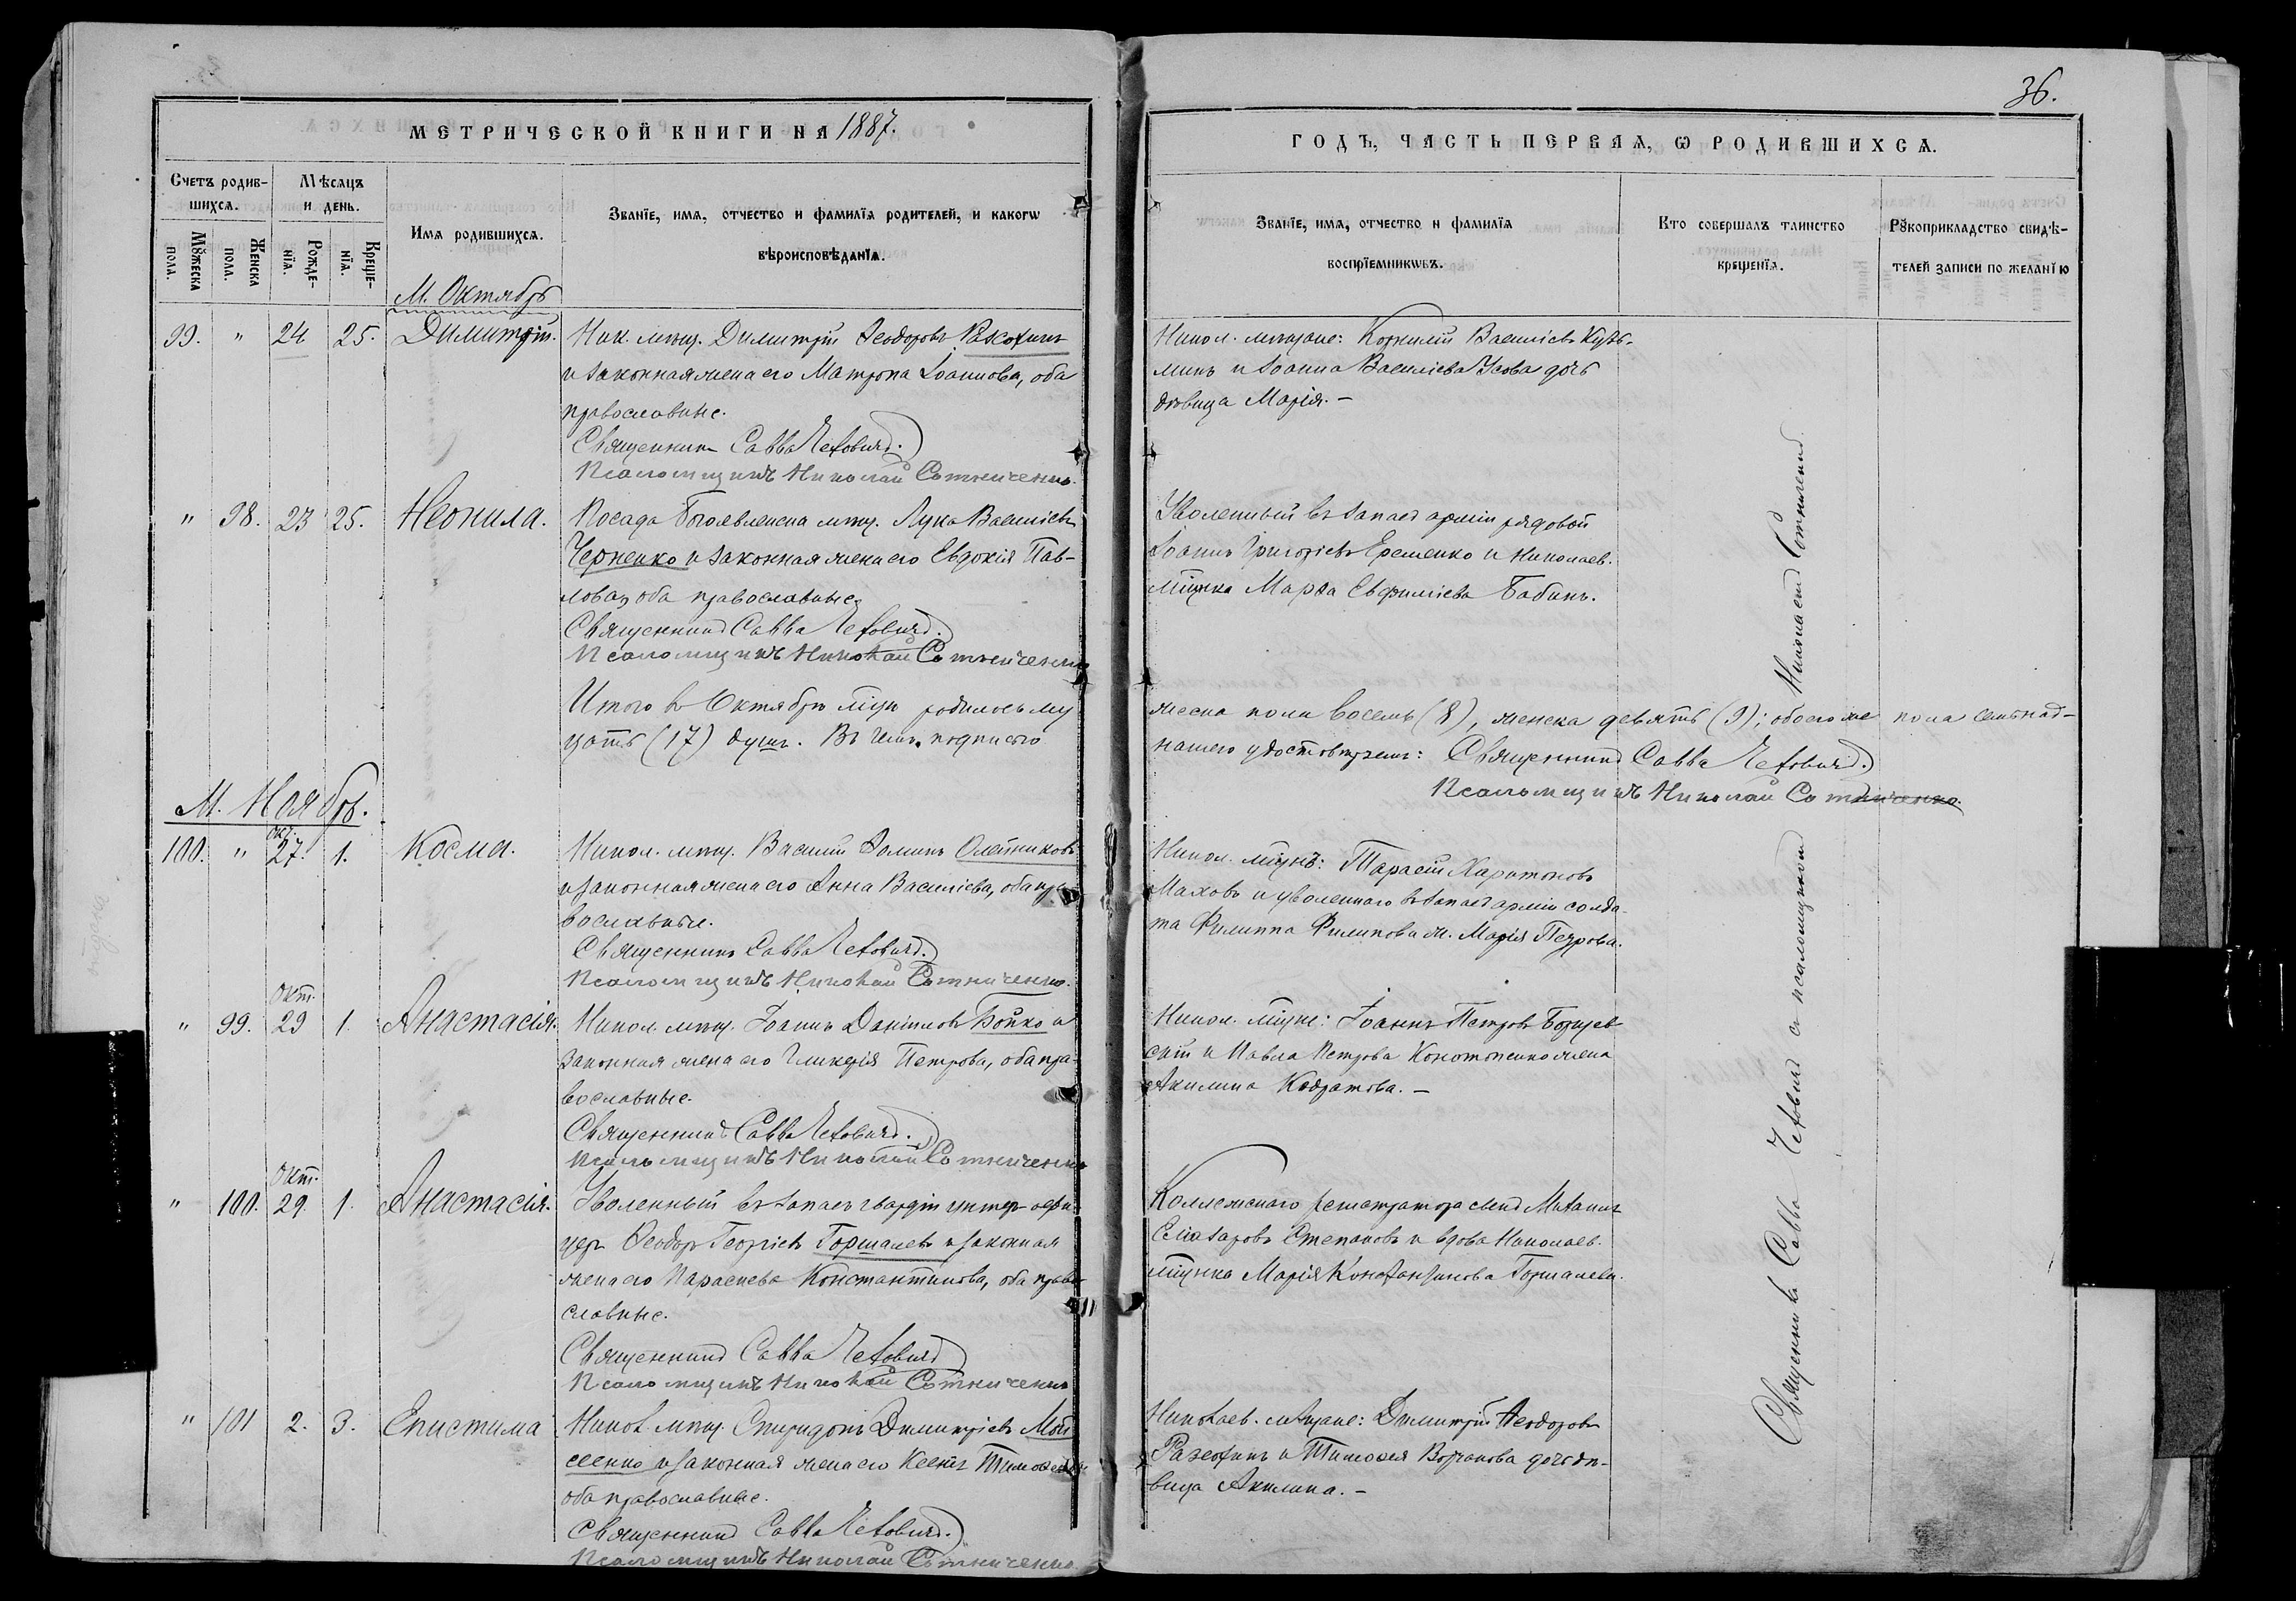 36.
МЕТРИЧЕСКОЙ КНИГИ НА 1887.
ГОДЪ, ЧАСТЬ ПЕРВАѦ, Ѡ РОДИВШИХСѦ.
Счетъ родив-
шихсѧ.
Мѣсѧцъ
и день.
Имѧ родившихсѧ.
Званїе, имѧ, отчество и фамилїѧ родителей, и какогѡ
вѣроисповѣданїѧ.
Мꙋжеска
пола.
Женска
пола.
Рожде-
нїѧ.
Креще-
нїѧ.
Званїе, имѧ, отчество и фамилїѧ
воспрїемникѡвъ.
Кто совершалъ таинство
крещенїѧ.
Рꙋкоприкладство свидѣ-
телей записи по желанїю
М. Октябрь
99. " 24. 25. Димитрій.
Ник. мѣщ. Димитрій Ѳеодоровъ
и законная жена его Матрона Іоаннова, оба
православные.
Священникъ Савва
Псаломщикъ Николай Сотниченко.
Никол. мѣщане: Корнилій Василіевъ Кузь-
минъ и Іоанна Василіева Усова дочь
дѣвица Марія. –
" 98. 23 25. Неонила.
Посада Богоявленска мѣщ. Лука Василіевъ
Черненко и законная жена его Евдокія Пав-
лова, оба православные.
Священникъ Савва
Псаломщикъ Николай Сотниченко
Уволенный въ запасъ арміи рядовой
Іоаннъ Григоріевъ Еременко и Николаев.
мѣщнка Марѳа Евфиміева Бабинъ.
Итого въ Октябрѣ мцѣ родилось му
жеска пола восемь (8), женска девять (9); обоего же пола семьнад-
цать (17) душъ. Въ чемъ подписью
нашею удостовѣряемъ: Священникъ Савва
Псаломщикъ Николай Сотниченко.
М. Ноябрь.
100. " окт. 27. 1. Косма.
Никол. мѣщ. Василій Ѳоминъ Олейниковъ
и законная жена его Анна Василіева, оба пра-
вославные.
Священникъ Савва
Псаломщикъ Николай Сотниченко.
Никол. мѣщнъ: Тарасій Харитоновъ
Маховъ и уволеннаго въ запасъ арміи солда-
та Филиппа Филипова ж. Марія Петрова.
" 99. Окт. 29 1. Анастасія.
Никол. мѣщ. Іоаннъ Даніиловъ Бойко и
законная жена его Гликерія Петрова, оба пра-
вославные.
Священникъ Савва
Псаломщикъ Николай Сотниченко
Никол. мѣщне: Іоаннъ Петровъ Борщев-
скій и Павла Петрова Конотопенко жена
Акилина Кодратова. –
" 100. Окт. 29. 1. Анастасія.
Уволенный въ запасъ гвардіи унтеръ офи-
церъ Ѳеодоръ Георгіевъ Горшалевъ и законная
жена его Параскева Константинова, оба право-
славные.
Священникъ Савва
Псаломщикъ Николай Сотниченко
Коллежскаго регистратора сынъ Михаилъ
Елеазаровъ Степановъ и вдова Николаев.
мѣщнка Марія Константинова Горшалева.
" 101 2. 3. Епистима
Никол. мѣщ. Спиридонъ Димитріевъ Мой-
сеенко и законная жена его Ксенія
оба православные.
Священникъ Савва
Псаломщикъ Николай Сотниченко.
Николаев. мѣщане: Димитрій Ѳеодоровъ
и Тимоѳея дочь дѣ-
вица Акилина. –
Священникъ Савва съ псаломщикомъ Николаемъ Сотниченко.